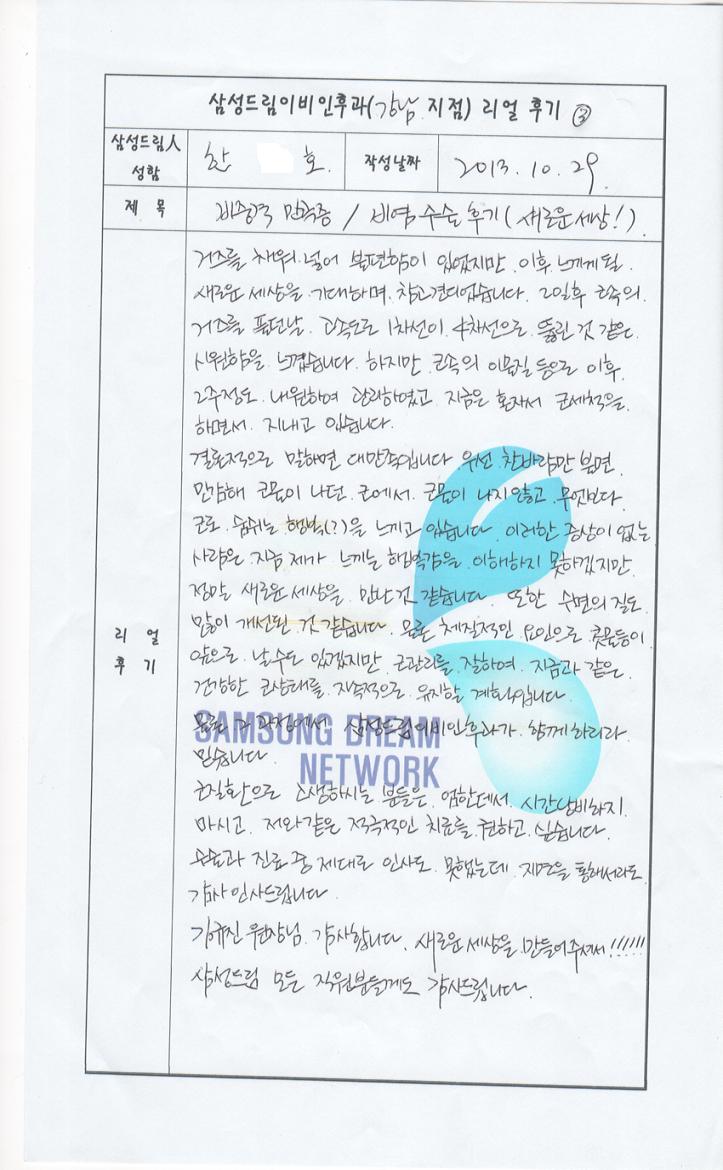 삼성드림이비인후과(강남 지점) 리얼 후기 ③
삼성드림人
성함
한 호.
작성날짜
2013. 10. 29.
제 목
비중격 만곡증 / 비염수술 후기 (새로운 세상!)
리 얼
후 기
거즈를 채워 넣어 불편함이 있었지만 이후 느끼게 될
새로운 세상을 기대하며, 참고 견디었습니다. 2일후 코속의
거즈를 푸던날. 고속도로 1차선이 4차선으로 뚫린 것 같은
시원함을 느꼈습니다. 하지만 코속의 이물질 등으로 이후
2주정도 내원하여 관리하였고 지금은 혼자서 코세척을
하면서 지내고 있습니다.
결론적으로 말하면 대만족입니다. 우선 찬바람만 불면
민감해 콧물이 나던 코에서 콧물이 나지 않고 무엇보다
코로 숨쉬는 행복(?)을 느끼고 있습니다. 이러한 증상이 없는
사람은 지금 제가 느끼는 행복감을 이해하지 못하겠지만
정말 새로운 세상을 만난 것 같습니다. 또한 수면의 질도
많이 개선된 것 같습니다. 물론 체질적인 요인으로 콧물등이
앞으로 날수도 있겠지만 코관리를 잘하여 지금과 같은
건강한 코상태를 지속적으로 유지할 계획입니다.
물론 그 과정에서 삼성드림이비인후과가 함께하리라
믿습니다.
코질환으로 고생하시는 분들은 엄한데서 시간낭비하지
마시고 저와같은 적극적인 치료를 권하고 싶습니다.
수술과 진료 중 제대로 인사도 못했는데 지면을 통해서라도
감사 인사드립니다.
김규진 원장님 감사합니다. 새로운 세상을 만들어주셔서!!!!!!
삼성드림 모든 직원분들께도 감사드립니다.
SAMSUNG DREAM
NETWORK